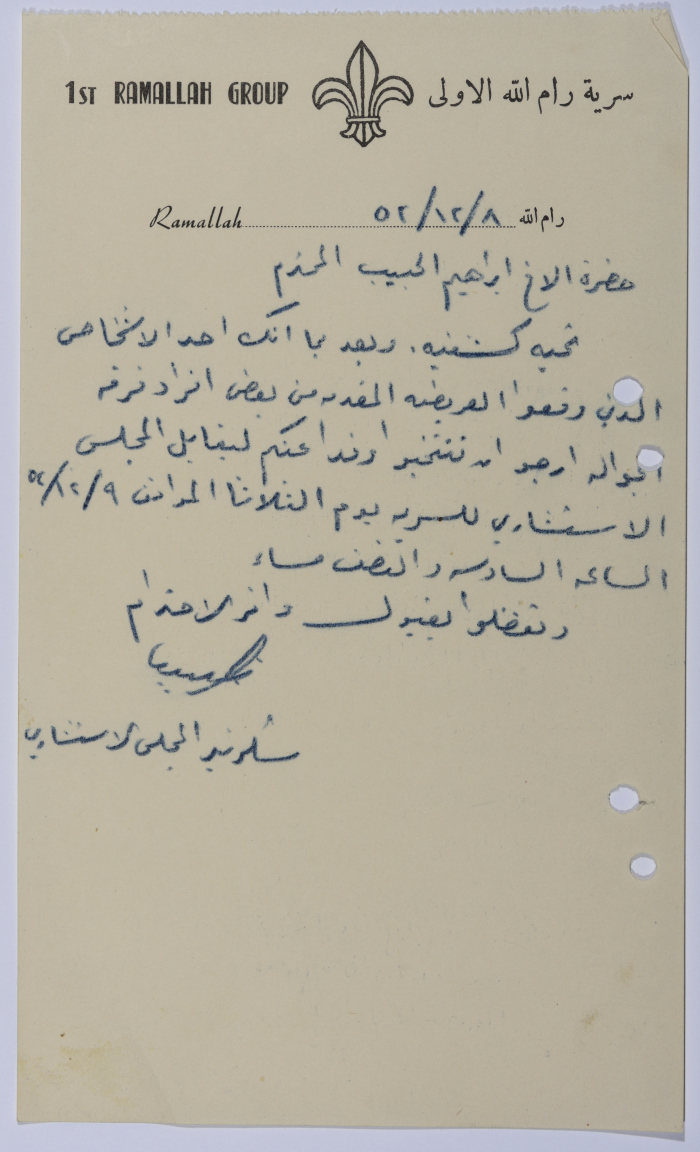 1ST RAMALLAH GROUP سرية رام الله الاولى
Ramallah ٥٢/١٢/٨ رام الله
حضرة الاخ ابراهيم الحبيب المحترم
تحيه كشفيه. وبعد بما انك احد الاشخاص
الذين وقعوا العريضه المقدمه من بعض افراد فرقه
الجواله ارجو ان تنتخبوا وفدا عنكم ليقابل المجلس
الاستشاري للسريه يوم الثلاثا الموافق ٥٢/١٢/٩
الساعه السادسه والنصف مساء
وتفضلوا بقبول وافر الاحترام
سكرتير المجلس الاستشاري